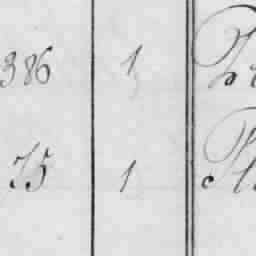 386 1
75 1